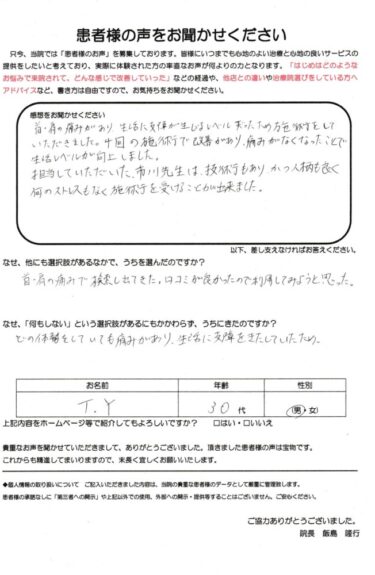 患者様の声をお聞かせください
只今、当院では「患者様のお声」を募集しております。皆様にいつまでも心地のよい治療と心地の良いサービスの
提供をしたいと考えており、実際に体験された方の率直なお声が何よりの力となります。「はじめはどのような
お悩みで来院されて、どんな感じで改善していった」などの経過や、他店との違いや治療院選びをしている方へ
アドバイスなど、書き方は自由ですので、お気持ちをお聞かせください。
感想をお聞かせください
首・肩の痛みがあり、生活に支障が生じるレベルだったため施術をして
いただきました。4回の施術で改善があり、痛みがなくなったことで
生活レベルが向上しました。
担当していただいた市川先生は、技術もあり かつ人柄も良く
何のストレスもなく施術を受けることが出来ました。
以下、差し支えなければお答えください。
なぜ、他にも選択肢があるなかで、うちを選んだのですか?
首・肩の痛みで検索し出てきた。口コミが良かったので利用してみようと思った。
なぜ、「何もしない」という選択肢があるにもかかわらず、うちにきたのですか?
どの体勢をしていても痛みがあり、生活に支障をきたしていたため。
お名前 年齢 性別
T.Y 30代 男・女
上記内容をホームページ等で紹介してもよろしいですか? □はい・□いいえ
貴重なお声を聞かせていただきまして、ありがとうございました。頂きました患者様の声は宝物です。
これからも精進してまいりますので、末長く宜しくお願いいたします。
◆個人情報の取り扱いについて ご記入いただきました内容は、当院の貴重な患者様のデータとして厳重に管理致します。
患者様の承諾なしに「第三者への開示」や上記以外での使用、外部への開示・提供等することはございません。ご安心ください。
ご協力ありがとうございました。
院長 飯島 隆行